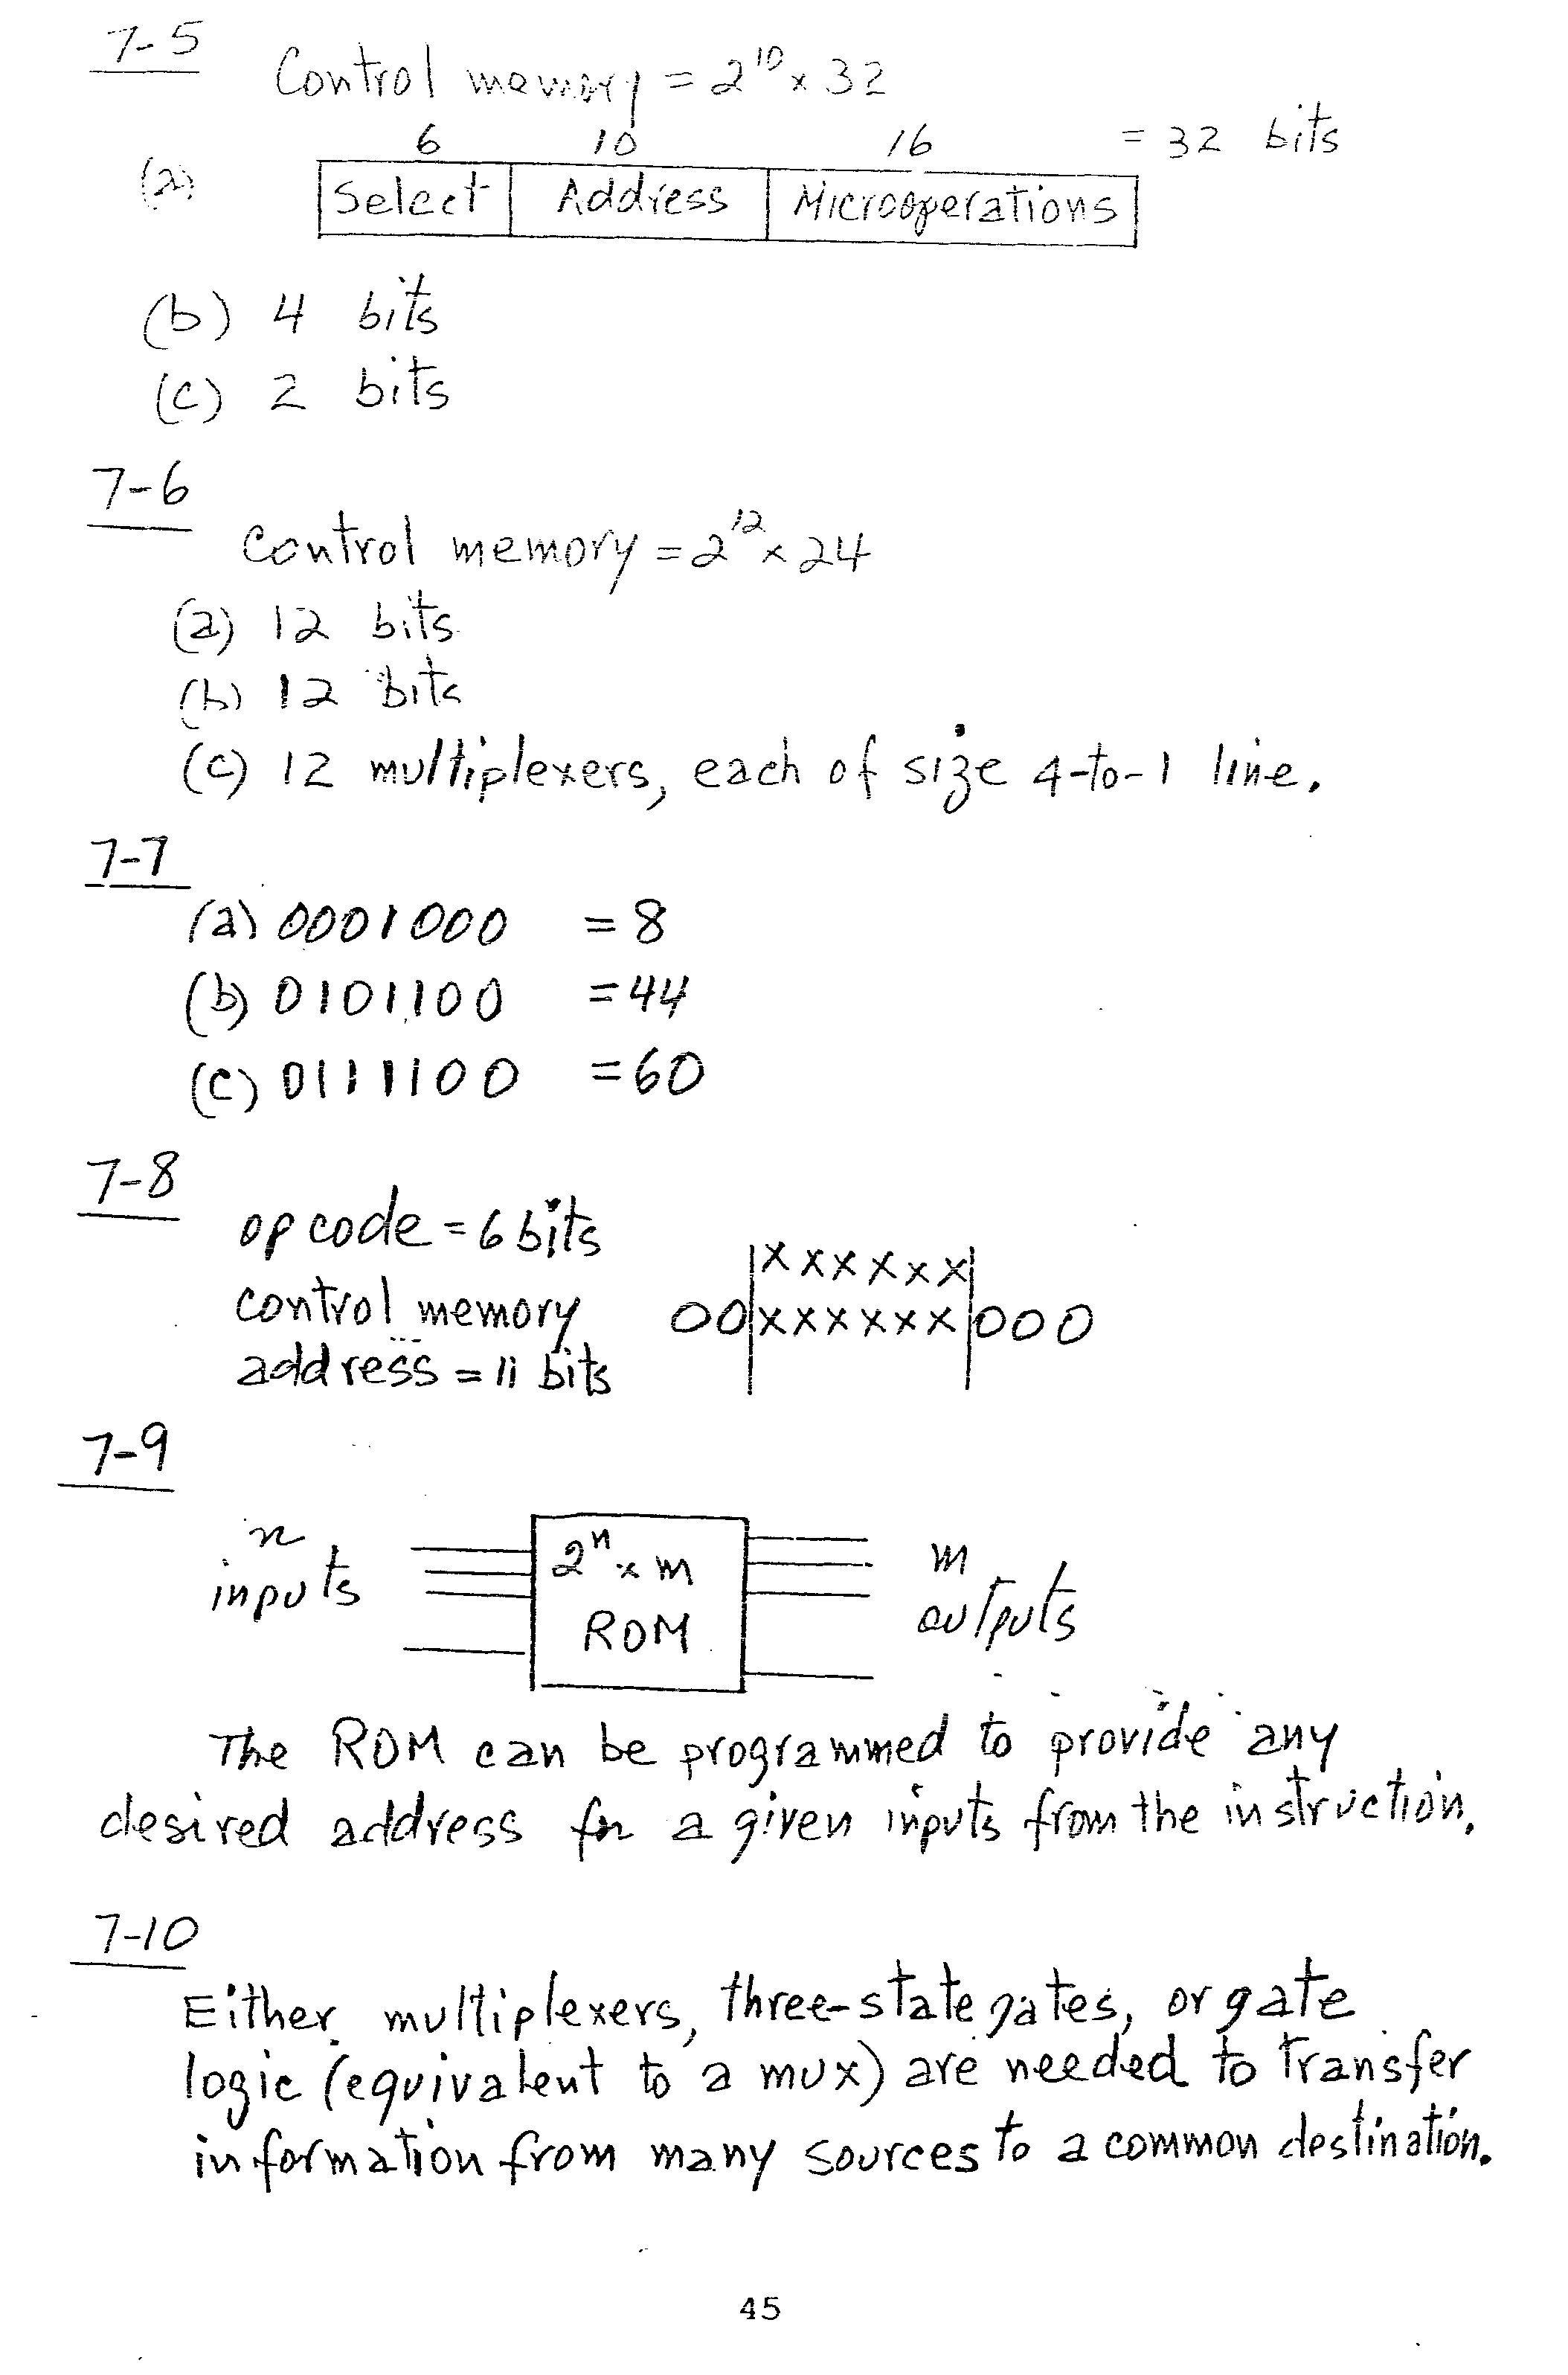 7-5
Control memory = 2¹⁰ × 32
6 10 16 = 32 bits
(a) Select Address Microoperations
(b) 4 bits
(c) 2 bits
7-6
Control memory = 2¹² × 24
(a) 12 bits
(b) 12 bits
(c) 12 multiplexers, each of size 4-to-1 line.
7-7
(a) 0001000 = 8
(b) 0101100 = 44
(c) 0111100 = 60
7-8
opcode = 6 bits
xxxxxx
control memory
00 xxxxxx 000
address = 11 bits
7-9
n
inputs
2ⁿ × m
ROM
m
outputs
The ROM can be programmed to provide any
desired address for a given inputs from the instruction.
7-10
Either multiplexers, three-state gates, or gate
logic (equivalent to a mux) are needed to transfer
information from many sources to a common destination.
45